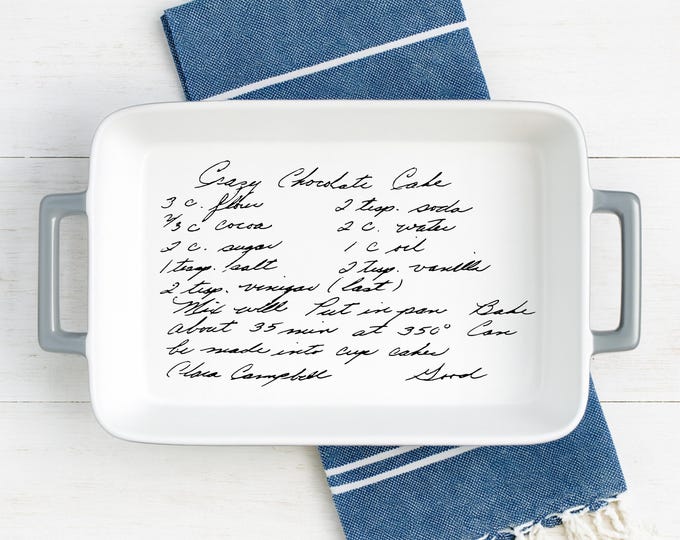 Crazy Chocolate Cake
3 c. flour 2 tesp. soda
2/3 c cocoa 2 c. water
2 c. sugar 1 c oil
1 teasp. salt 2 tesp. vanilla
2 tesp. vinigar (last)
Mix well Put in pan Bake
about 35 min at 350° Can
be made into cup cakes
Clara Campbell Good